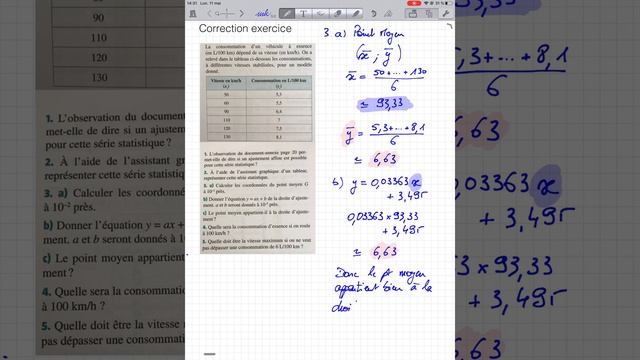 14:31 Lun. 11 mai
31 %
Correction exercice
La consommation d'un véhicule à essence
(en L/100 km) dépend de sa vitesse (en km/h). On a
relevé dans le tableau ci-dessous les consommations,
à différentes vitesses stabilisées, pour un modèle
donné.
Vitesse en km/h Consommation en L/100 km
50 5,3
60 5,5
90 6,4
110 7
120 7,5
130 8,1
1. L'observation du document-annexe page 20 per-
met-elle de dire si un ajustement affine est possible
pour cette série statistique ?
2. À l'aide d'un tableur,
représenter cette série statistique.
3. a) Calculer les coordonnées du point moyen G
à 10⁻² près.
b) Donner l'équation y = ax + b de la droite d'ajuste-
ment. a et b seront donnés à 10⁻⁵ près.
c) Le point moyen appartient-il à la droite d'ajuste-
ment ?
4. Quelle sera la consommation d'essence si on roule
à 100 km/h ?
5. Quelle doit être la vitesse maximum si on ne veut
pas dépasser une consommation de 6 L/100 km ?
3 a) Point moyen
(x̄ ; ȳ)
x̄ = 50 + ... + 130
6
≃ 93,33
ȳ = 5,3 + ... + 8,1
6
≃ 6,63
b) y = 0,03363 x
+ 3,495
0,03363 × 93,33
+ 3,495
≃ 6,63
Donc le pt moyen
appartient bien à la
droi
90
110
120
130
1. L'observation du
met-elle de dire si un ajusteme
pour cette série statistique ?
2. À l'aide de l'assistant grap
représenter cette série statist
3. a) Calculer les coordonné
à 10⁻² près.
b) Donner l'équation y = ax +
ment. a et b seront donnés à 1
c) Le point moyen appartient
ment ?
4. Quelle sera la consommat
à 100 km/h ?
5. Quelle doit être la vitesse
pas dépasser une consommat
93,33
5,3 + ... + 8,1
6
6,63
0,03363 x
+ 3,495
3 × 93,33
+ 3,495
6,63